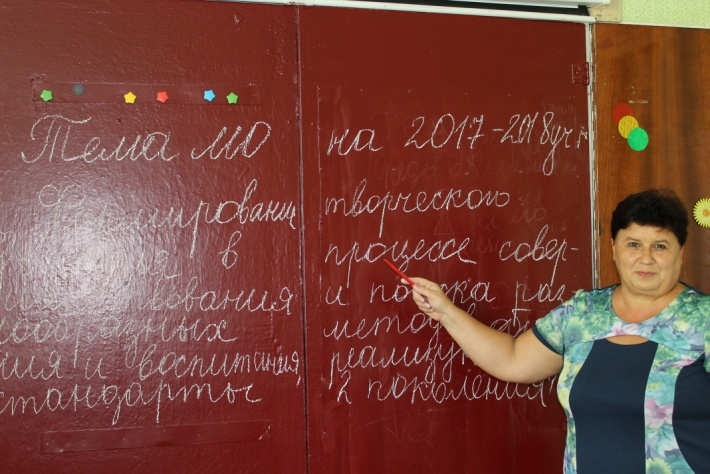 Тема МО на 2017-2018 уч.
Формирование творческого
в процессе совер-
ования и поиска раз
нообразных методов
ния и воспитания, реализу
стандарты 2 поколения